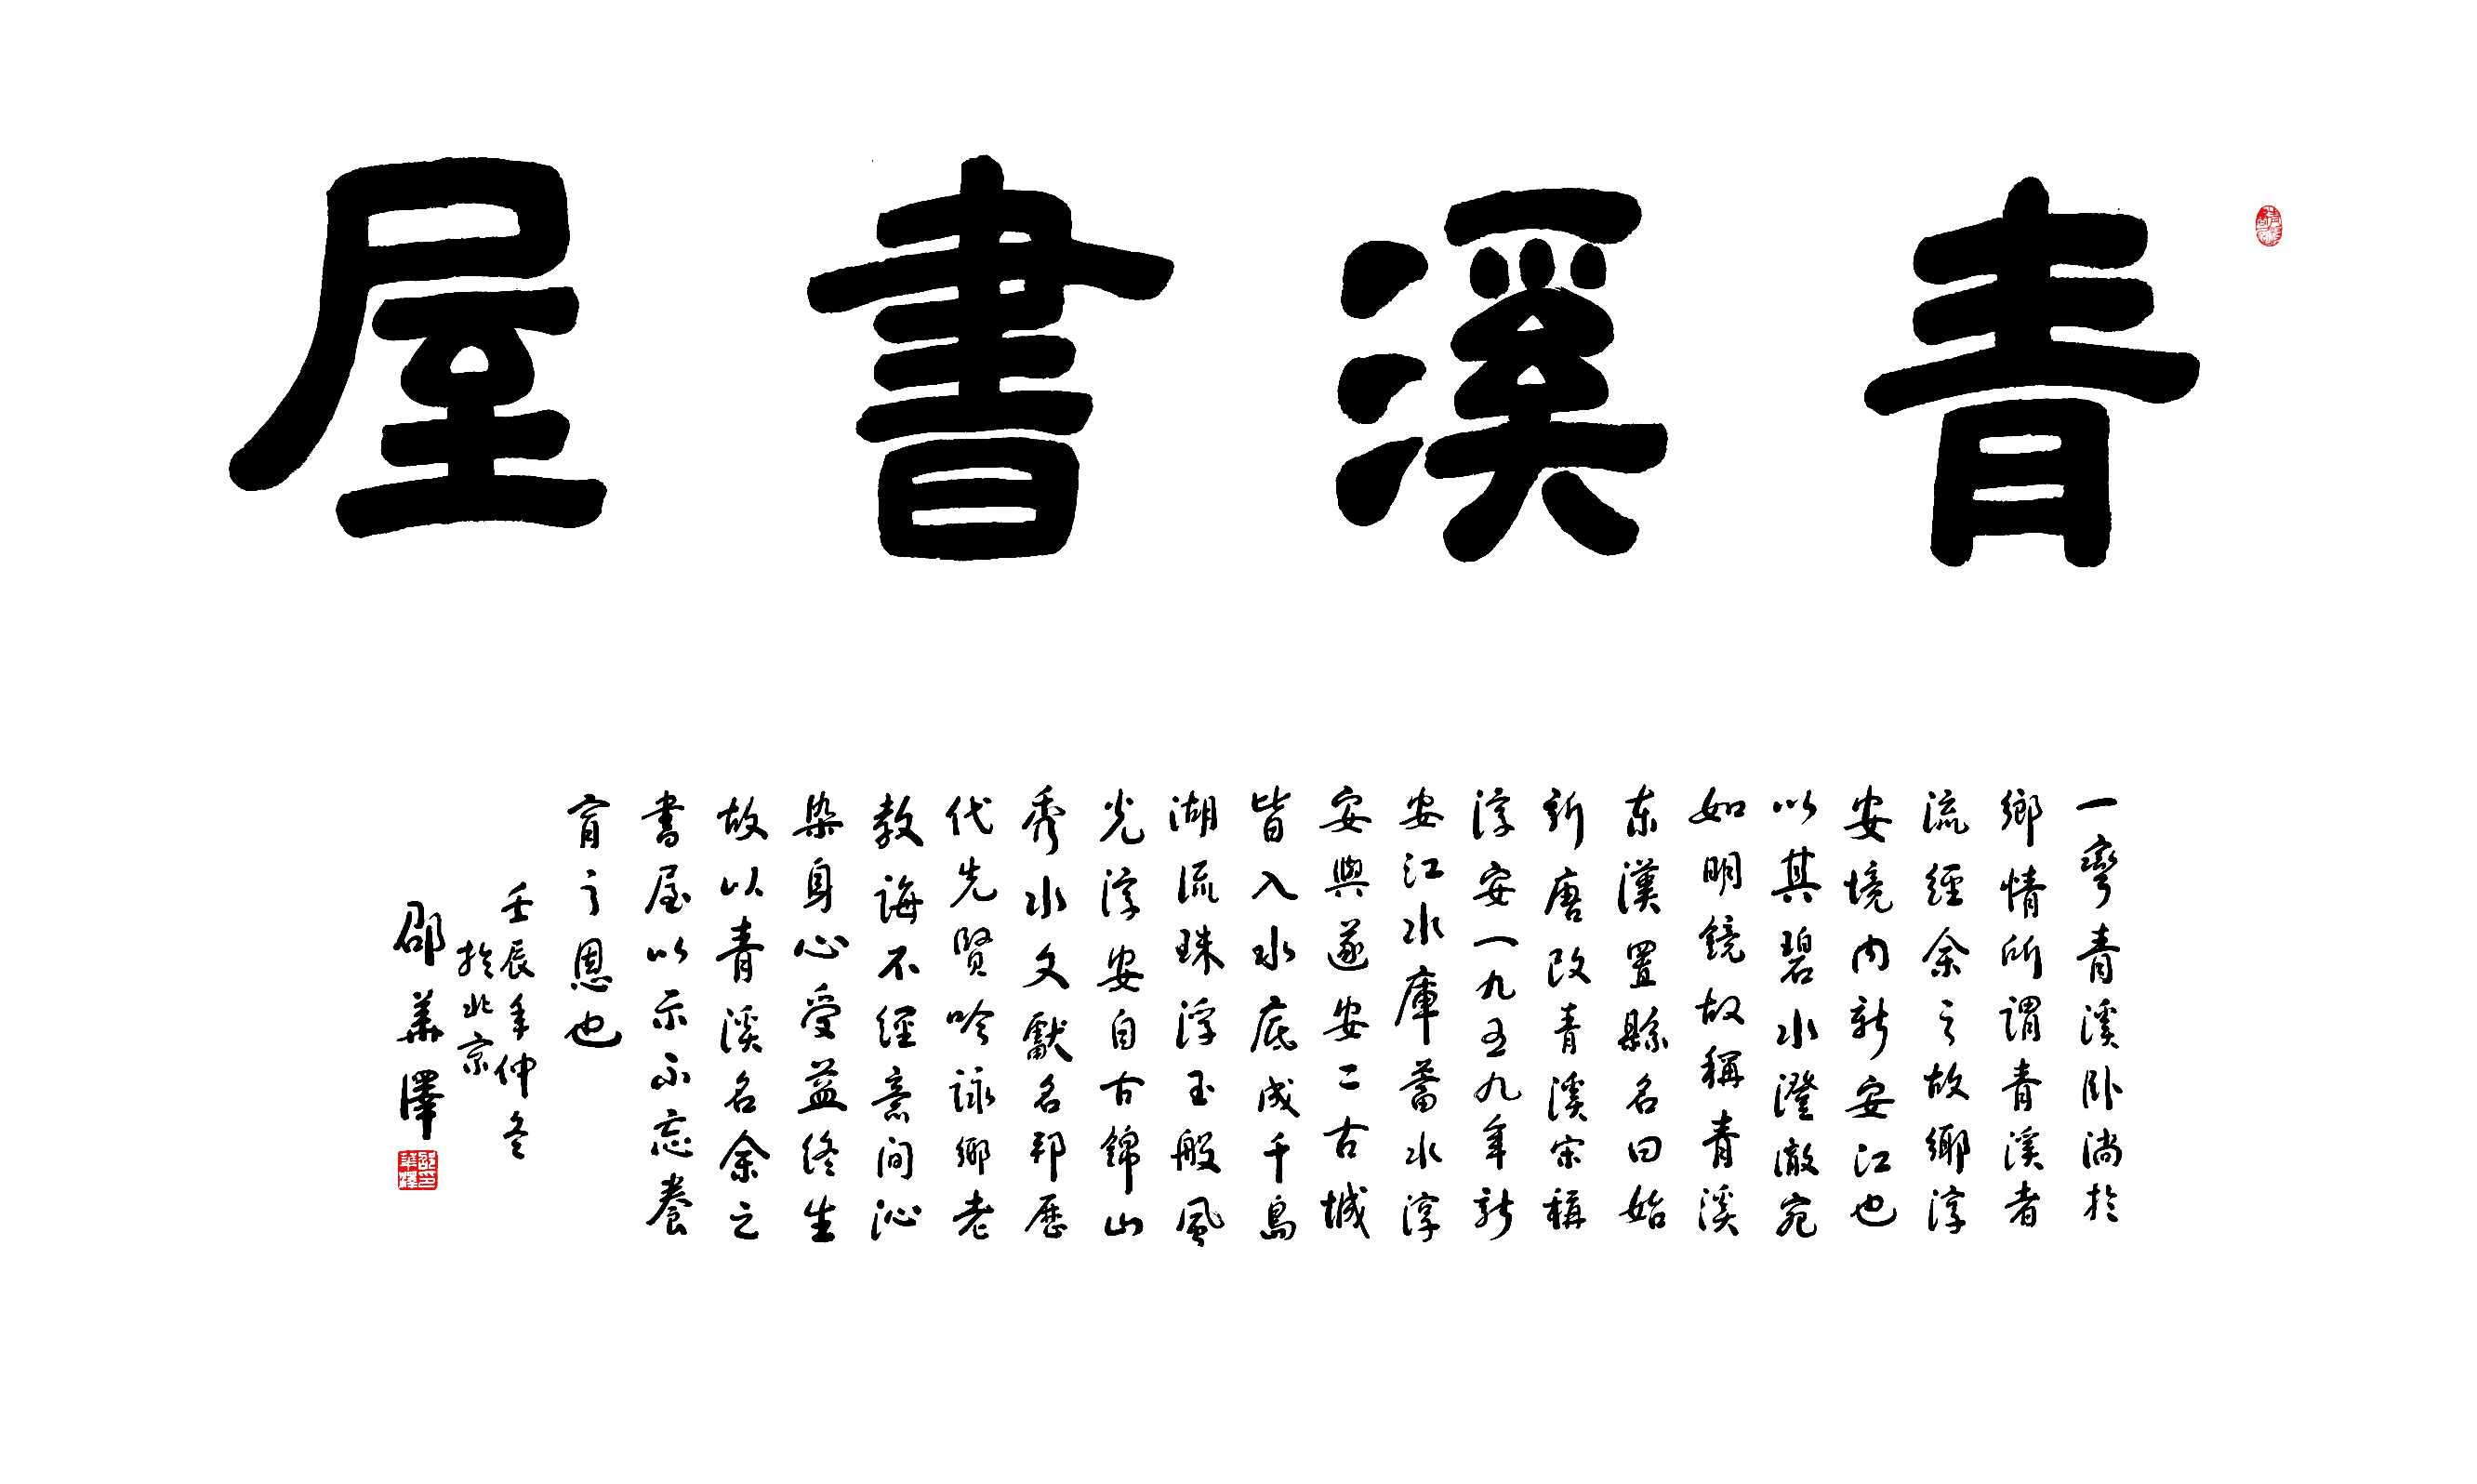 青溪書屋
一彎青溪卧淌於
鄉情所謂青溪者
流經余之故鄉淳
安境内新安江也
以其碧水澄澈宛
如明鏡故稱青溪
东漢置縣名曰始
新唐改青溪宋稱
淳安一九五九年新
安江水庫蓄水淳
安與遂安二古城
皆入水底成千島
湖流珠浮玉般風
光淳安自古錦山
秀水文獻名邦歷
代先賢吟詠鄉老
教誨不經意间沁
染身心受益终生
故以青溪名余之
書屋以示不忘養
育之恩也
壬辰年仲冬
於北京
邵華澤